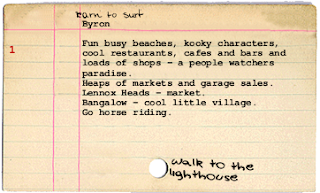 Learn to surf
Byron
1
Fun busy beaches, kooky characters,
cool restaurants, cafes and bars and
loads of shops - a people watchers
paradise.
Heaps of markets and garage sales.
Lennox Heads - market.
Bangalow - cool little village.
Go horse riding.
walk to the
lighthouse